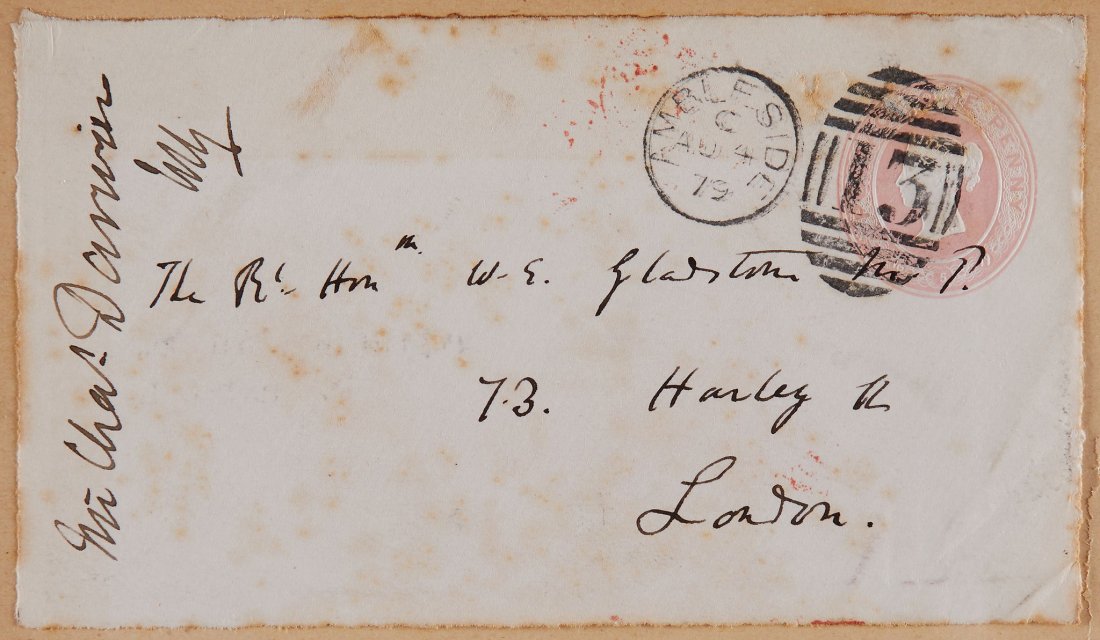 AMBLESIDE
C
AU 4
79
13
PENNY
The Rt. Honble W. E. Gladstone M P.
73. Harley St
London.
Mr Chas. Darwin